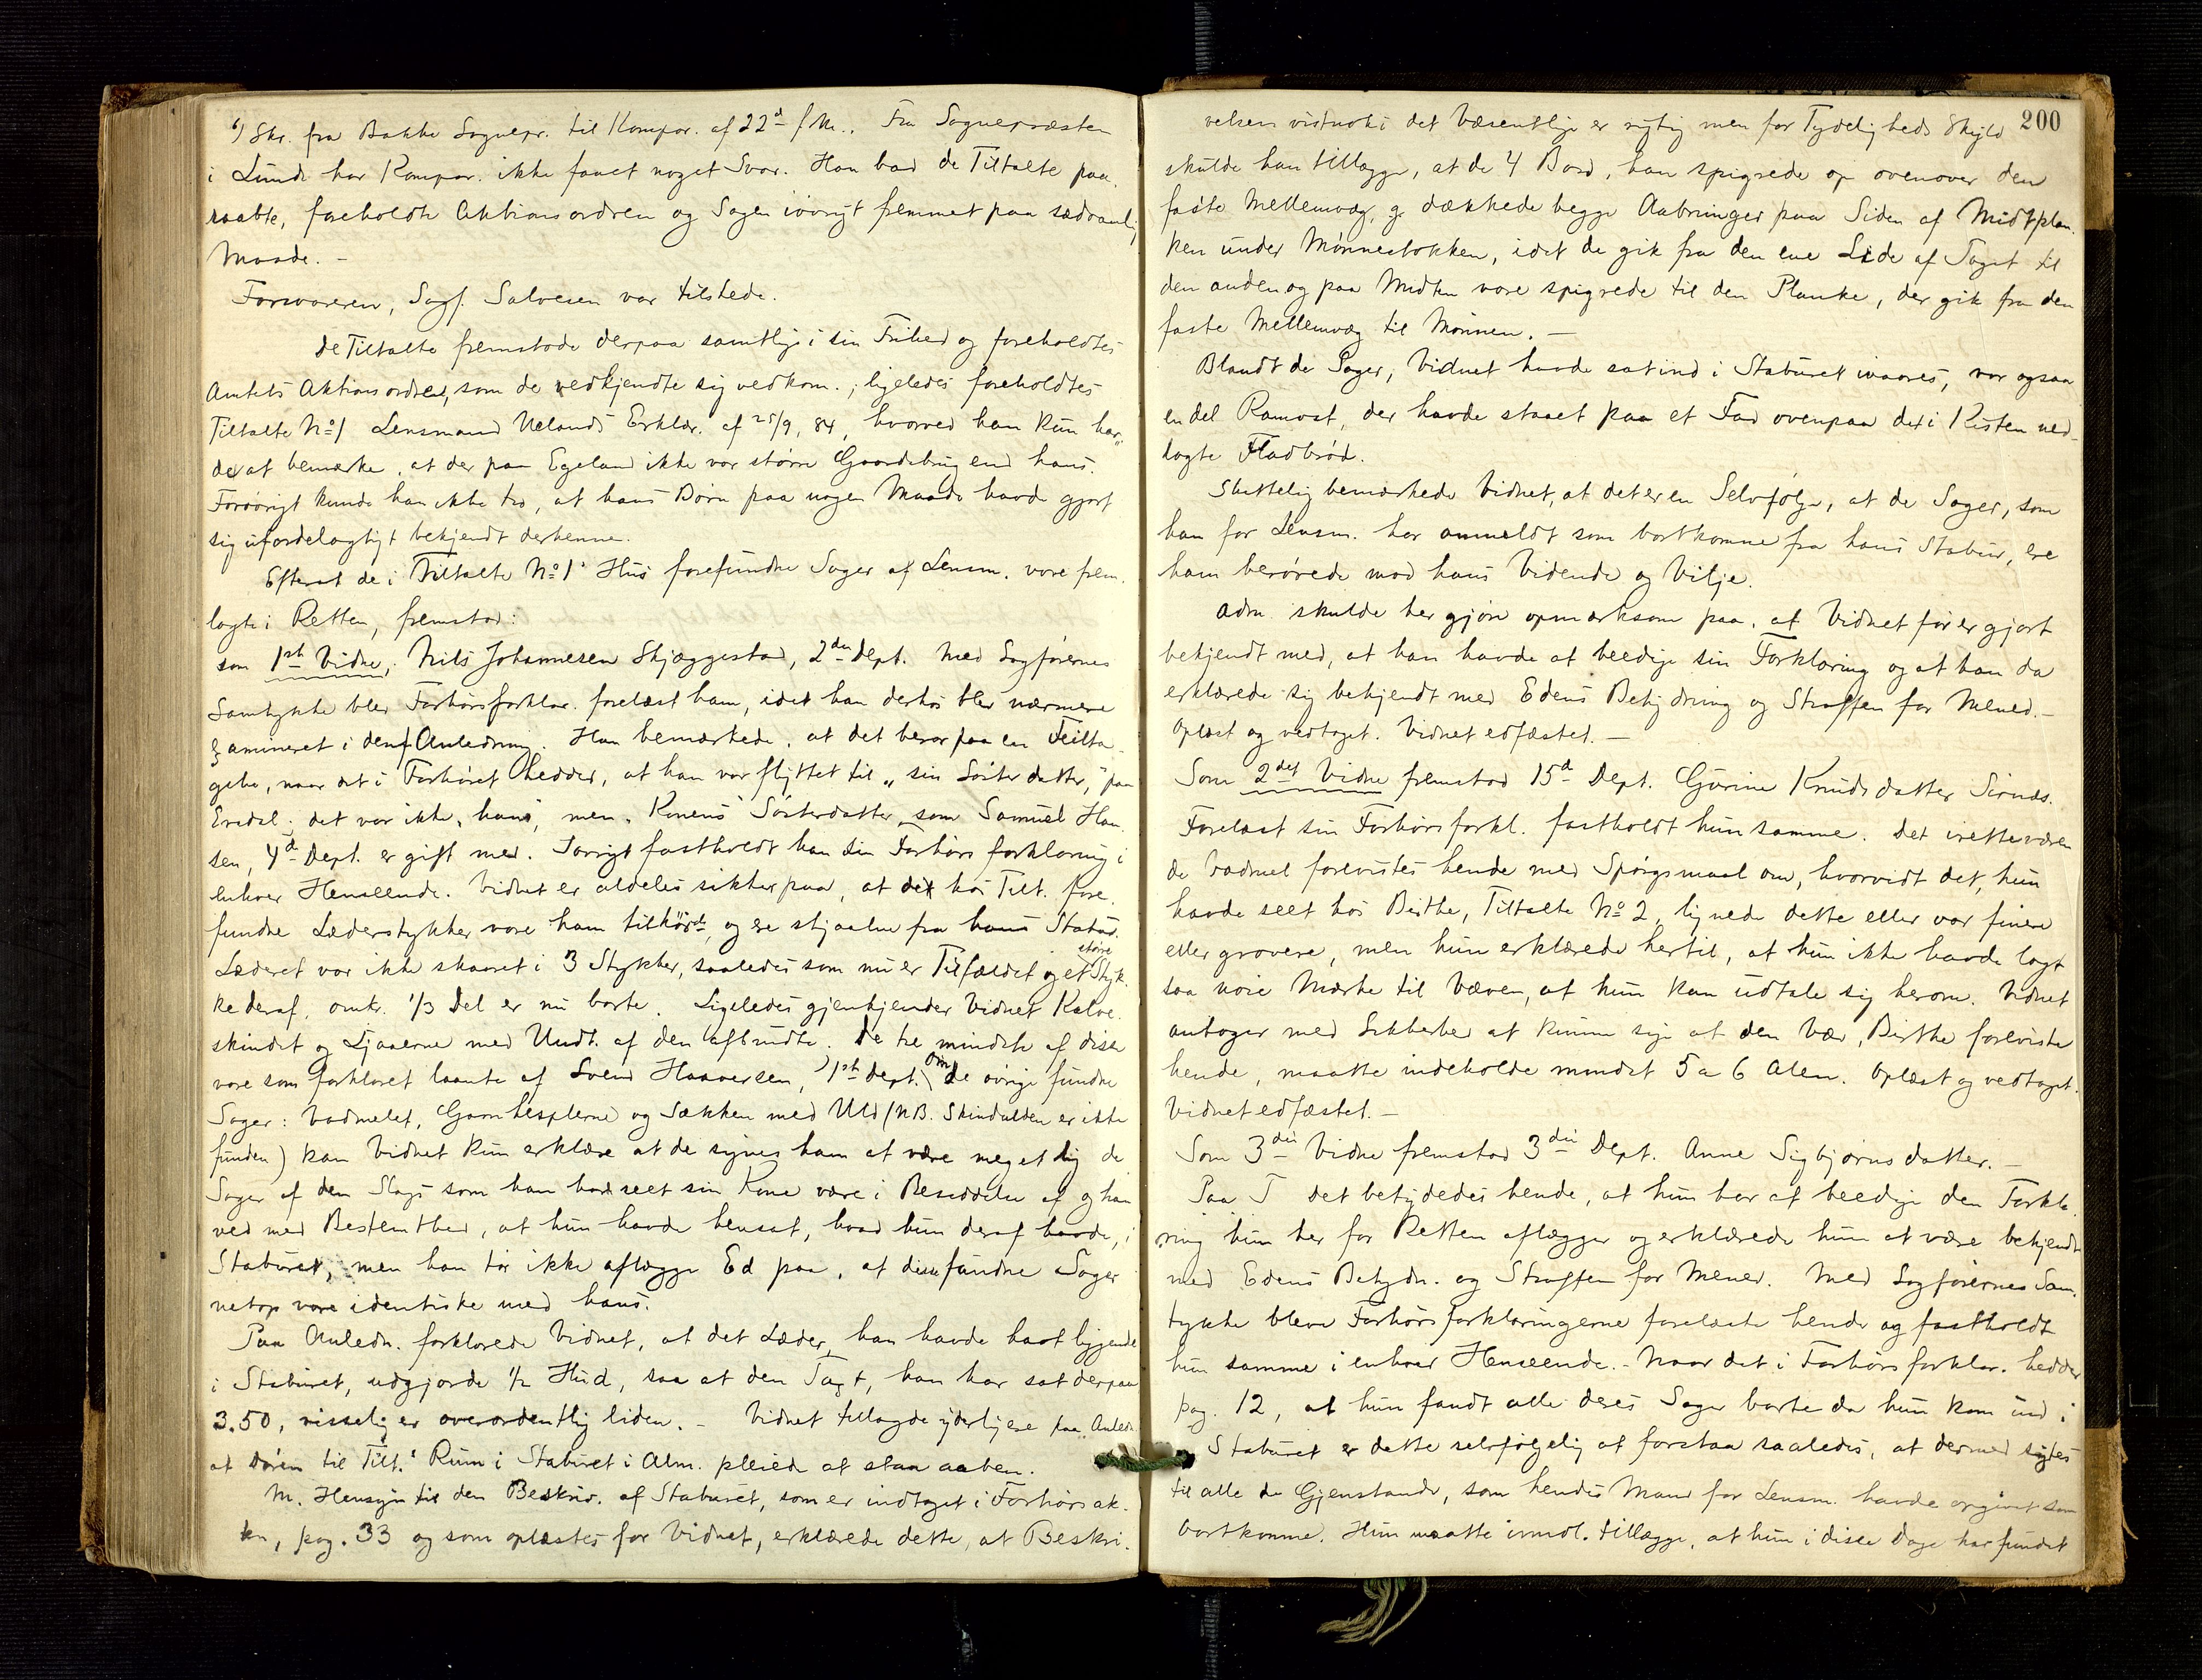 6) Skr. fra Bakke Sognepr. til Kompar. af 22d f M.. Fra Sognepræsten
i Lunde har Kompar. ikke faaet noget Svar. Han bad de Tiltalte paa-
raabte, foreholdte Aktionsordren og Sagen iøvrigt fremmet paa sædvanlig
Maade. -
Forsvareren, Sagf. Salvesen var tilstede.
De Tiltalte fremstode derpaa samtlige i sin Frihed og foreholdtes
Amtets Aktionsordre, som de vedkjendte sig vedkom.; ligeledes foreholdtes
Tiltalte No 1 Lensmand Uelands Erklær. af 25/9, 84, hvorved han kun hav-
de at bemærke, at der paa Egeland ikke var større Gaardsbrug end hans.
Forøvrigt kunde han ikke tro, at hans Børn paa nogen Maade havde gjort
sig ufordelagtigt bekjendt derhenne.
Efterat de i Tiltalte No 1' Hus forefundne Sager af Lensm. vare frem-
lagte i Retten, fremstod:
som 1ste Vidne, Nils Johannesen Skjæggestad, 2den Dept. Med Sagførernes
Samtykke blev Forhørsforklar. forelæst ham, idet han derhos blev nærmere
examineret i dens Anledning. Han bemærkede, at det beror paa en Feilta-
gelse, naar det i Forhøret hedder, at han var flyttet til „sin Søsterdatter," paa
Eredal; det var ikke „hans, men „Konens Søsterdatter, som Samuel Han-
sen, 4d Dept. er gift med. Iøvrigt fastholdt han sin Forhørsforklaring i
enhver Henseende. Vidnet er aldeles sikker paa, at de hos Tilt. fore-
fundne Læderstykker vare ham tilhørde, og ere stjaalne fra hans Stabur.
Læderet var ikke skaaret i 3 Stykker, saaledes som nu er Tilfældet og et større Styk-
ke deraf, omtr. 1/3 Del er nu borte. Ligeledes gjenkjender Vidnet Kalve-
skindet og Ljaaerne med Undt. af den afbrudte. De tre mindste af disse
vare som forklaret laante af Svend Haaversen, 1ste Dept. Om de øvrige fundne
Sager: Vadmelet, Garnhesplerne og Sækken med Uld (NB. Skindulden er ikke
funden) kan Vidnet kun erklære at de synes ham at være meget lig de
Sager af den Slags som han har seet sin Kone være i Besiddelse af og han
ved med Bestemthed, at hun havde hensat, hvad hun deraf havde, i
Staburet, men han tør ikke aflægge Ed paa, at disse fundne Sager
netop vare identiske med hans.
Paa Anledn. forklarede Vidnet, at det Læder, han havde havt liggende
i Staburet, udgjorde 1/2 Hud, saa at den Taxt, han har sat derpaa
3.50, visselig er overordentlig liden. - Vidnet tillagde yderligere paa Anledn.
at Døren til Tilt.' Rum i Staburet i Alm. pleiede at staa aaben.
M. Hensyn til den Beskriv. af Staburet, som er indtaget i Forhørsak-
ten, pag. 33 og som oplæstes for Vidnet, erklærede dette, at Beskri-
200
velsen vistnok i det Væsentlige er rigtig men for Tydeligheds Skyld
skulde han tillægge, at de 4 Bord, han spigrede op ovenover den
faste Mellemvæg, g dækkede begge Aabninger paa Siden af Midtplan-
ken under Mønnestokken, idet de gik fra den ene Side af Taget til
den anden og paa Midten vare spigrede til den Planke, der gik fra den
faste Mellemvæg til Mønnen. -
Blandt de Sager, Vidnet havde sat ind i Staburet ivaares, var ogsaa
en del Ramost, der havde staaet paa et Fad ovenpaa det i Kisten ned-
lagte Fladbrød.
Sluttelig bemærkede Vidnet, at det er en Selvfølge, at de Sager, som
han for Lensm. har anmeldt som bortkomne fra hans Stabur, ere
ham berøvede mod hans Vidende og Vilje.
Adm. skulde her gjøre opmærksom paa, at Vidnet før er gjort
bekjendt med, at han havde at beedige sin Forklaring og at han da
erklærede sig bekjendt med Edens Betydning og Straffen for Mened. -
Oplæst og vedtaget. Vidnet edfæstet. -
Som 2det Vidne fremstod 15d Dept. Gurine Knudsdatter Sirnæs.
Forelæst sin Forhørsforkl. fastholdt hun samme. Det iretteværen-
de Vadmel forevistes hende med Spørgsmaal om, hvorvidt det, hun
havde seet hos Birthe, Tiltalte No 2, lignede dette eller var finere
eller grovere, men hun erklærede hertil, at hun ikke havde lagt
saa nøie Mærke til Væven, at hun kan udtale sig herom. Vidnet
antager med Sikkerhed at kunne sige at den Væv, Birthe foreviste
hende, maatte indeholde mindst 5 a 6 Alen. Oplæst og vedtaget.
Vidnet edfæstet. -
Som 3die Vidne fremstod 3die Dept. Anne Sigbjørnsdatter. -
Paa T det betydedes hende, at hun har at beedige den Forkla-
ring hun her for Retten aflægger og erklærede hun at være bekjendt
med Edens Betydn. og Straffen for Mened. Med Sagførernes Sam-
tykke bleve Forhørsforklaringerne forelæste hende og fastholdt
hun samme i enhver Henseende. - Naar det i Forhørsforklar. hedder
pag. 12, at hun fandt alle deres Sager borte da hun kom ind i
Staburet er dette selvfølgelig at forstaa saaledes, at dermed sigtes
til alle de Gjenstande, som hendes Mand for Lensm. havde opgivet som
bortkomne. Hun maatte imidl. tillægge, at hun i disse Dage har fundet